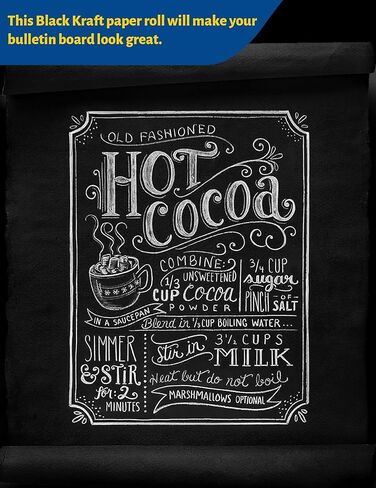 This Black Kraft paper roll will make your
bulletin board look great.
OLD FASHIONED
HOT
COCOA
COMBINE:
1/3 UNSWEETENED
CUP COCOA
POWDER
3/4 CUP
sugar
PINCH OF SALT
IN A SAUCEPAN
Blend in 1/3 CUP BOILING WATER...
SIMMER
& STIR
for 2
MINUTES
Stir in 3 1/2 CUPS
MILK
Heat but do not boil
MARSHMALLOWS OPTIONAL